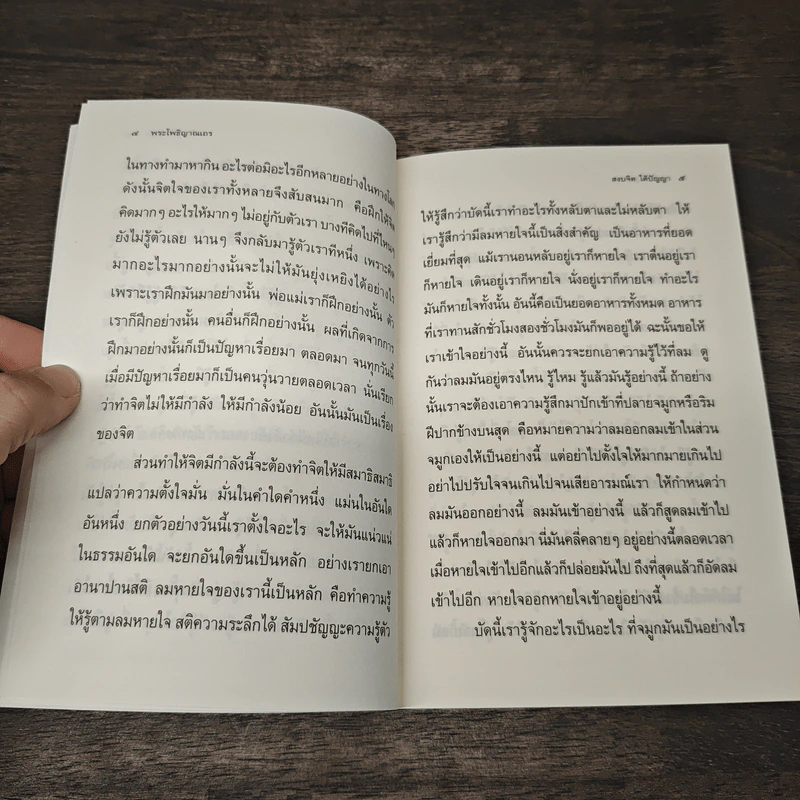 ๔ พระโพธิญาณเถร
ในทางทำมาหากิน อะไรต่อมิอะไรอีกหลายอย่างในทางโลก
ดังนั้นจิตใจของเราทั้งหลายจึงสับสนมาก คือฝึกให้จิต
คิดมากๆ อะไรให้มากๆ ไม่อยู่กับตัวเรา บางทีคิดไปที่ไหนๆ
ยังไม่รู้ตัวเลย นานๆ จึงกลับมารู้ตัวเราทีหนึ่ง เพราะคิด
มากอะไรมากอย่างนั้นจะไม่ให้มันยุ่งเหยิงได้อย่างไร
เพราะเราฝึกมันมาอย่างนั้น พ่อแม่เราก็ฝึกอย่างนั้น ตัว
เราก็ฝึกอย่างนั้น คนอื่นก็ฝึกอย่างนั้น ผลที่เกิดจากการ
ฝึกมาอย่างนั้นก็เป็นปัญหาเรื่อยมา ตลอดมา จนทุกวันนี้
เมื่อมีปัญหาเรื่อยมาก็เป็นคนวุ่นวายตลอดเวลา นั่นเรียก
ว่าทำจิตไม่ให้มีกำลัง ให้มีกำลังน้อย อันนั้นมันเป็นเรื่อง
ของจิต
ส่วนทำให้จิตมีกำลังนี้จะต้องทำจิตให้มีสมาธิสมาธิ
แปลว่าความตั้งใจมั่น มั่นในคำใดคำหนึ่ง แม่นในอันใด
อันหนึ่ง ยกตัวอย่างวันนี้เราตั้งใจอะไร จะให้มันแน่วแน่
ในธรรมอันใด จะยกอันใดขึ้นเป็นหลัก อย่างเรายกเอา
อานาปานสติ ลมหายใจของเรานี้เป็นหลัก คือทำความรู้
ให้รู้ตามลมหายใจ สติความระลึกได้ สัมปชัญญะความรู้ตัว
สงบจิต ได้ปัญญา ๕
ให้รู้สึกว่าบัดนี้เราทำอะไรทั้งหลับตาและไม่หลับตา ให้
เรารู้สึกว่ามีลมหายใจนี้เป็นสิ่งสำคัญ เป็นอาหารที่ยอด
เยี่ยมที่สุด แม้เรานอนหลับอยู่เราก็หายใจ เราตื่นอยู่เรา
ก็หายใจ เดินอยู่เราก็หายใจ นั่งอยู่เราก็หายใจ ทำอะไร
มันก็หายใจทั้งนั้น อันนี้คือเป็นยอดอาหารทั้งหมด อาหาร
ที่เราทานสักชั่วโมงสองชั่วโมงมันก็พออยู่ได้ ฉะนั้นขอให้
เราเข้าใจอย่างนี้ อันนั้นควรจะยกเอาความรู้ไว้ที่ลม ดู
กันว่าลมมันอยู่ตรงไหน รู้ไหม รู้แล้วมันรู้อย่างนี้ ถ้าอย่าง
นั้นเราจะต้องเอาความรู้สึกมาปักเข้าที่ปลายจมูกหรือริม
ฝีปากข้างบนสุด คือหมายความว่าลมออกลมเข้าในส่วน
จมูกเองให้เป็นอย่างนี้ แต่อย่าไปตั้งใจให้มากมายเกินไป
อย่าไปปรับใจจนเกินไปจนเสียอารมณ์เรา ให้กำหนดว่า
ลมมันออกอย่างนี้ ลมมันเข้าอย่างนี้ แล้วก็สูดลมเข้าไป
แล้วก็หายใจออกมา นี่มันคลี่คลายๆ อยู่อย่างนี้ตลอดเวลา
เมื่อหายใจเข้าไปอีกแล้วก็ปล่อยมันไป ถึงที่สุดแล้วก็อัดลม
เข้าไปอีก หายใจออกหายใจเข้าอยู่อย่างนี้
บัดนี้เรารู้จักอะไรเป็นอะไร ที่จมูกมันเป็นอย่างไร